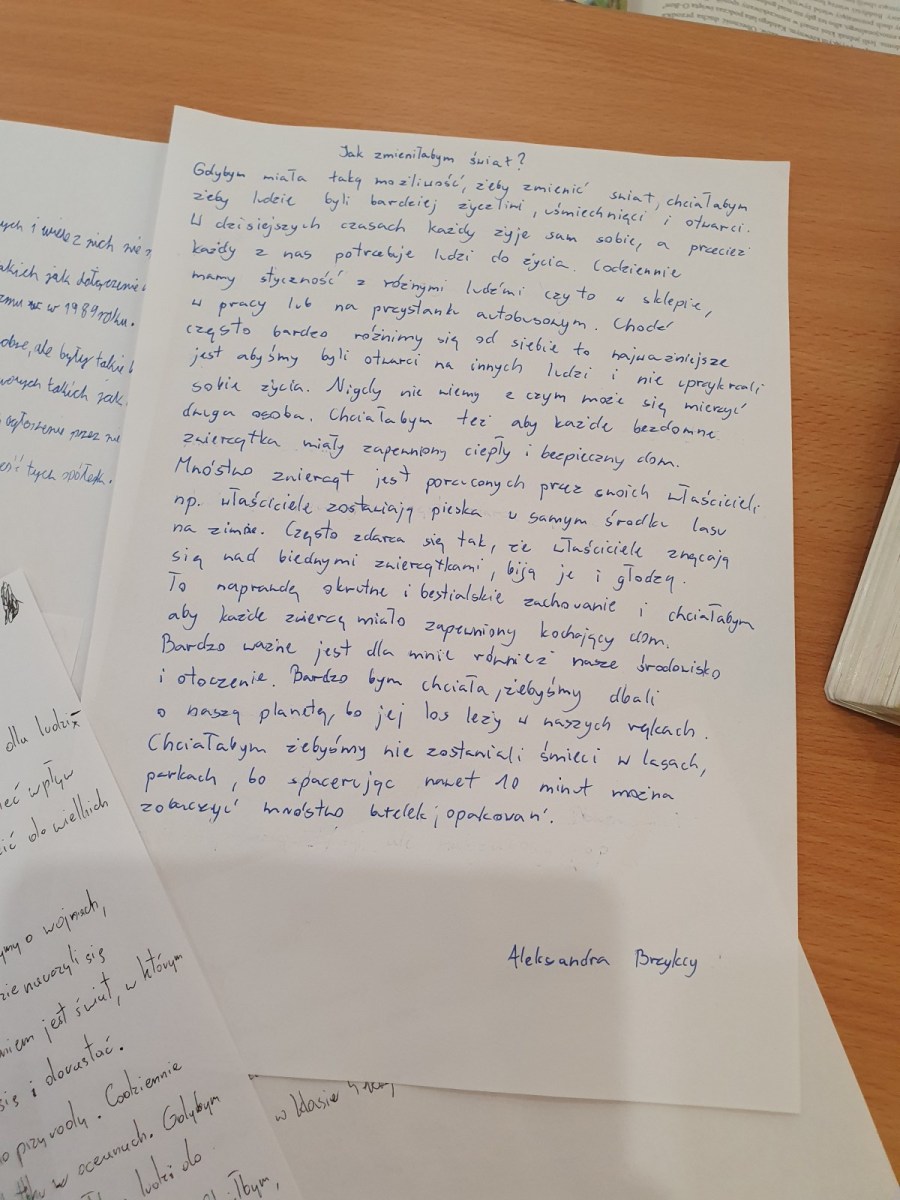 Jak zmieniłabym świat?
Gdybym miała taką możliwość, żeby zmienić świat, chciałabym
żeby ludzie byli bardziej życzliwi, uśmiechnięci i otwarci.
W dzisiejszych czasach każdy żyje sam sobie, a przecież
każdy z nas potrzebuje ludzi do życia. Codziennie
mamy styczność z różnymi ludźmi czy to w sklepie,
w pracy lub na przystanku autobusowym. Choć
często bardzo różnimy się od siebie to najważniejsze
jest abyśmy byli otwarci na innych ludzi i nie uprzykrzali
sobie życia. Nigdy nie wiemy z czym może się mierzyć
druga osoba. Chciałabym też aby każde bezdomne
zwierzątka miały zapewniony ciepły i bezpieczny dom.
Mnóstwo zwierząt jest porzuconych przez swoich właścicieli,
np. właściciele zostawiają pieska w samym środku lasu
na zimnie. Często zdarza się tak, że właściciele znęcają
się nad biednymi zwierzątkami, biją je i głodzą.
To naprawdę okrutne i bestialskie zachowanie i chciałabym
aby każde zwierzę miało zapewniony kochający dom.
Bardzo ważne jest dla mnie również nasze środowisko
i otoczenie. Bardzo bym chciała, żebyśmy dbali
o naszą planetę, bo jej los leży w naszych rękach.
Chciałabym żebyśmy nie zostawiali śmieci w lasach,
parkach, bo spacerując nawet 10 minut można
zobaczyć mnóstwo butelek i opakowań.
Aleksandra Brzykcy
ych i wielu z nich nie
akich jak dołączenie
w 1989 roku.
ale były takie
takich jak
ogłoszenu przez
tych spółek.
dla ludzi
wpływ
do wielkich
o wojnach,
nauczyli się
jest świat, w którym
się i dorastać.
przyrody. Codziennie
w oceanach. Gdybym
ludzi do
w klasie 4